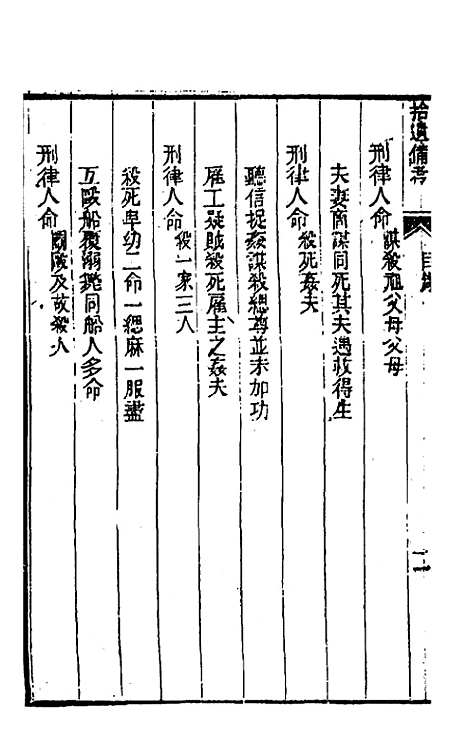 拾遺備考 目錄 二
刑律人命 謀殺祖父母父母
夫妻商謀同死其夫遇救得生
刑律人命 殺死姦夫
聽信捉姦謀殺緦尊並未加功
雇工疑賊殺死雇主之姦夫
刑律人命 殺一家三人
殺死卑幼二命一緦麻一服盡
互毆船覆溺斃同船人多命
刑律人命 鬬毆及故殺人